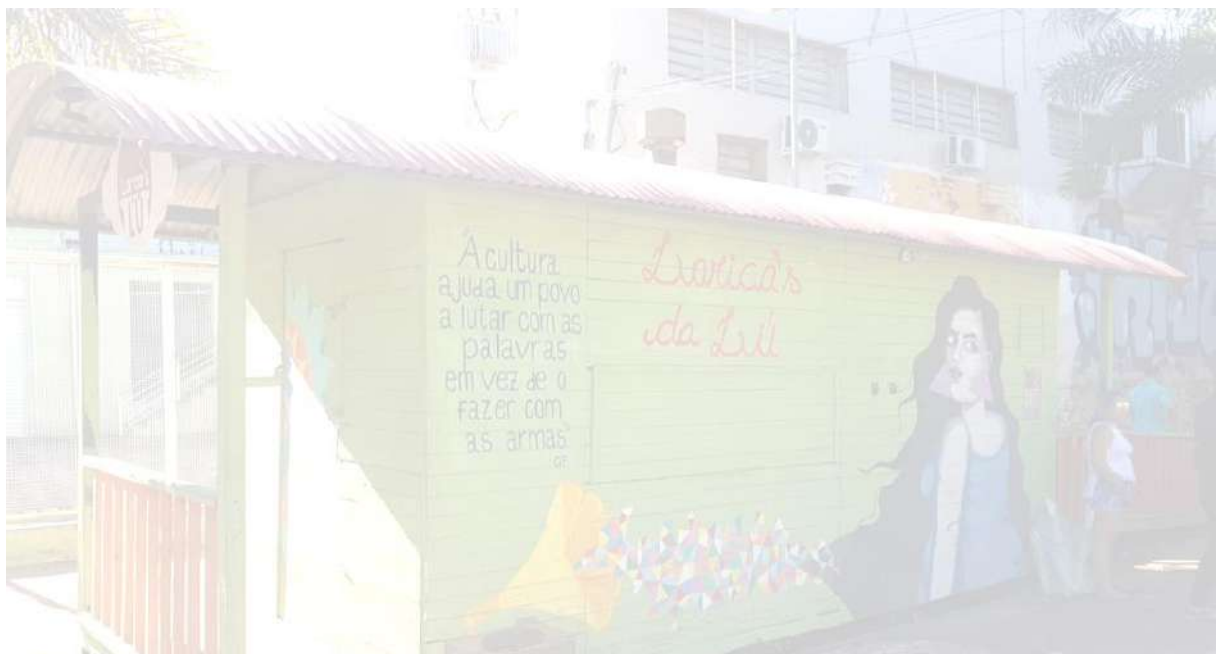 "A cultura
ajuda um povo
a lutar com as
palavras
em vez de o
fazer com
as armas"
GF
Larica's
da Lú